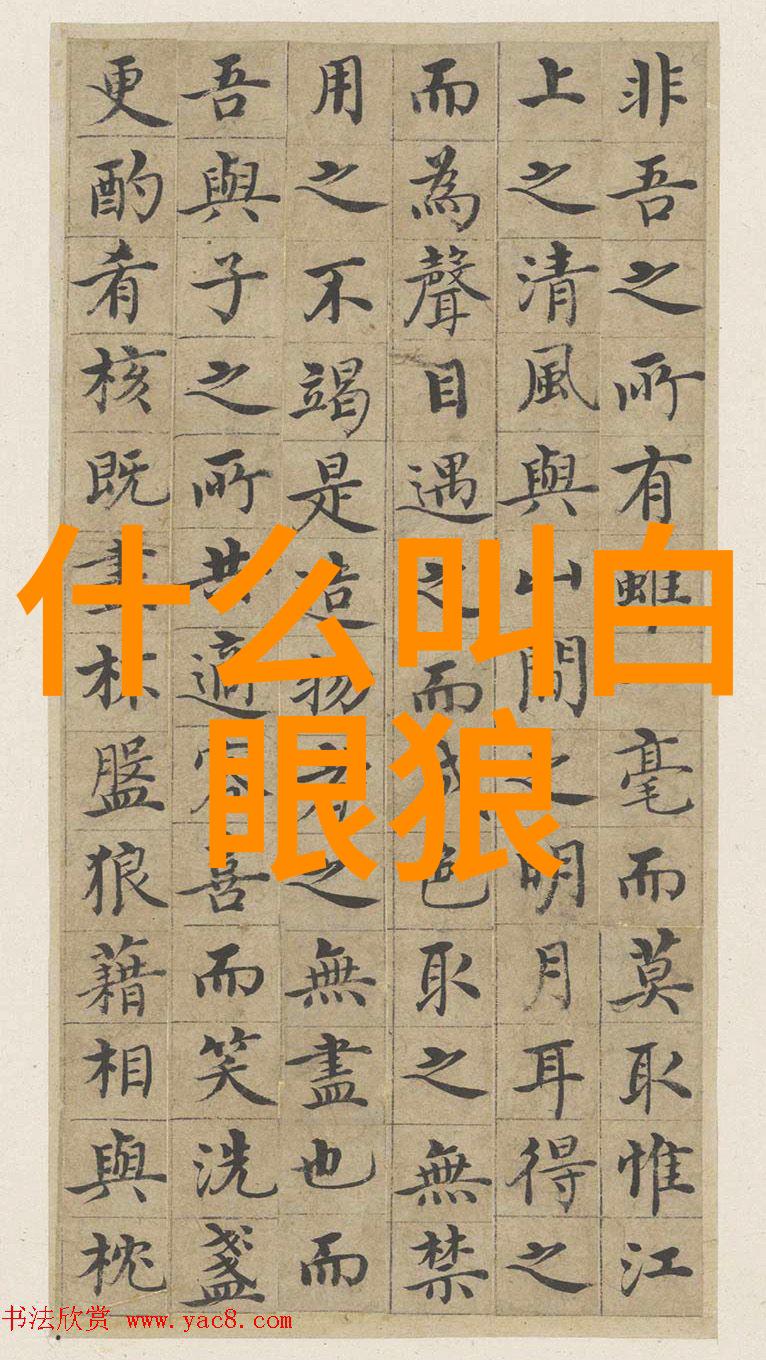 非吾之所有雖一毫而莫取惟江
上之清風與山間之明月耳得之
而為聲目遇之而成色取之無禁
用之不竭是造物者之無盡也而
吾與子之所共適客喜而笑洗盞
更酌肴核既盡杯盤狼藉相與枕
什么叫白
眼狼
书法欣赏 www.yac8.com